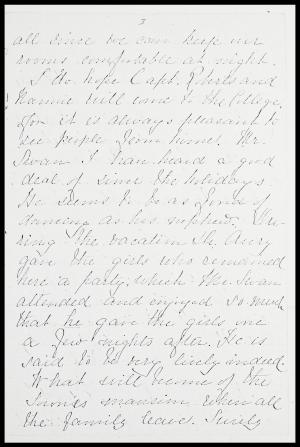 3
all since we can keep our
rooms comfortable at night.
I do hope Capt. Roberts and
Nannie will come to the College,
for it is always pleasant to
see people from home. Mr.
Swan I have heard a good
deal of since the holidays.
He seems to be as fond of
dancing as his nephew. Du-
ring the vacation Mr. Avery
gave the girls who remained
here a party, which Mr. Swan
attended and enjoyed so much
that he gave the girls one
a few nights after. He is
said to be very lively indeed.
What will become of the
mansion when all
the family leave. Surely